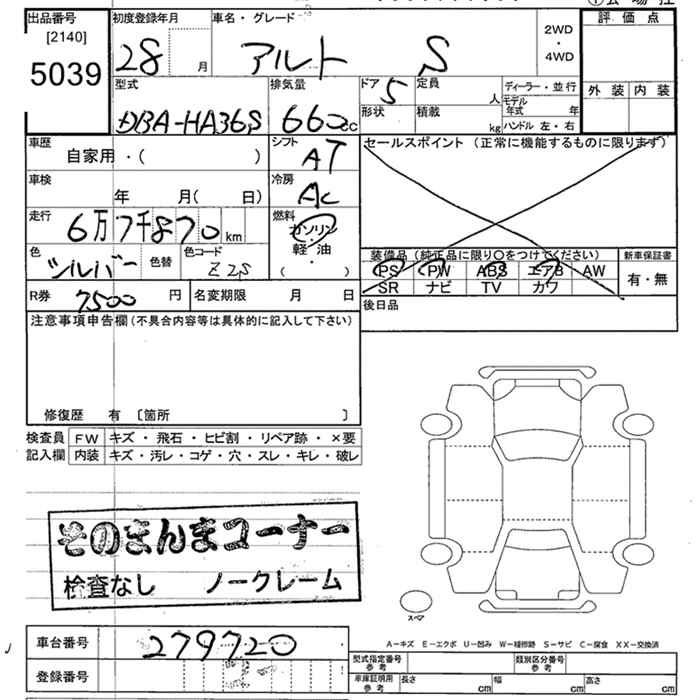 出品番号
[2140]
5039
初度登録年月
28 月
車名・グレード
アルト S
2WD
・
4WD
評価点
外装 内装
型式
DBA-HA36S
排気量
660cc
ドア
5
形状
定員
人
積載
kg
ディーラー・並行
モデル年式 年
ハンドル 左・右
車歴
自家用・( )
シフト
AT
車検
年 月( 日)
冷房
AC
走行
6万7千870km
燃料
ガソリン
軽・油
( )
色
シルバー
色替
色コード
Z2S
R券 7500 円
名変期限 月 日
セールスポイント (正常に機能するものに限ります)
装備品 (純正品に限り○をつけてください)
PS PW ABS エアB AW
SR ナビ TV カワ
新車保証書
有・無
後日品
注意事項申告欄(不具合内容等は具体的に記入して下さい)
修復歴 有 〔箇所 〕
検査員記入欄
FW キズ・飛石・ヒビ割・リペア跡・×要
内装 キズ・汚レ・コゲ・穴・スレ・キレ・破レ
そのまんまコーナー
検査なし ノークレーム
スペア
A=キズ E=エクボ U=凹み W=補修跡 S=サビ C=腐食 XX=交換済
車台番号 279720
登録番号
型式指定番号参考
類別区分番号参考
車庫証明用参考
長さ cm 幅 cm 高さ cm